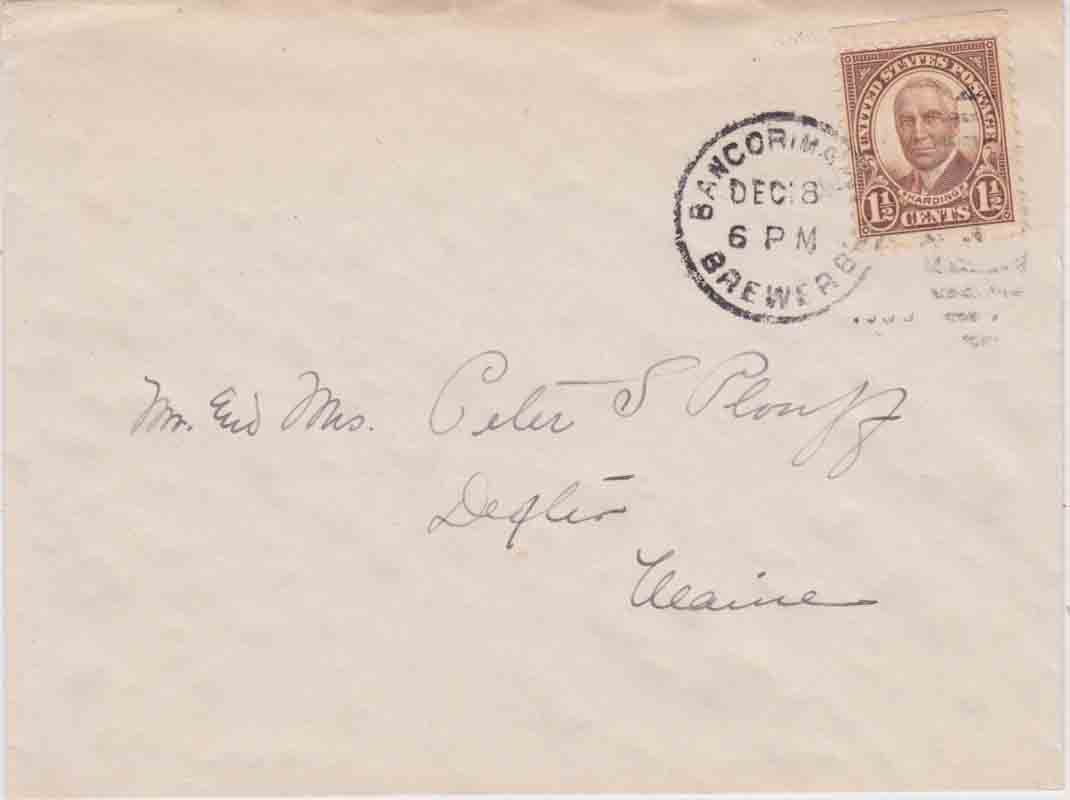 UNITED STATES POSTAGE
HARDING
1½ CENTS 1½
BANGOR, MA
DEC 18
6 PM
BREWER B
Mr. and Mrs. Peter S Plouff
Dexter
Maine